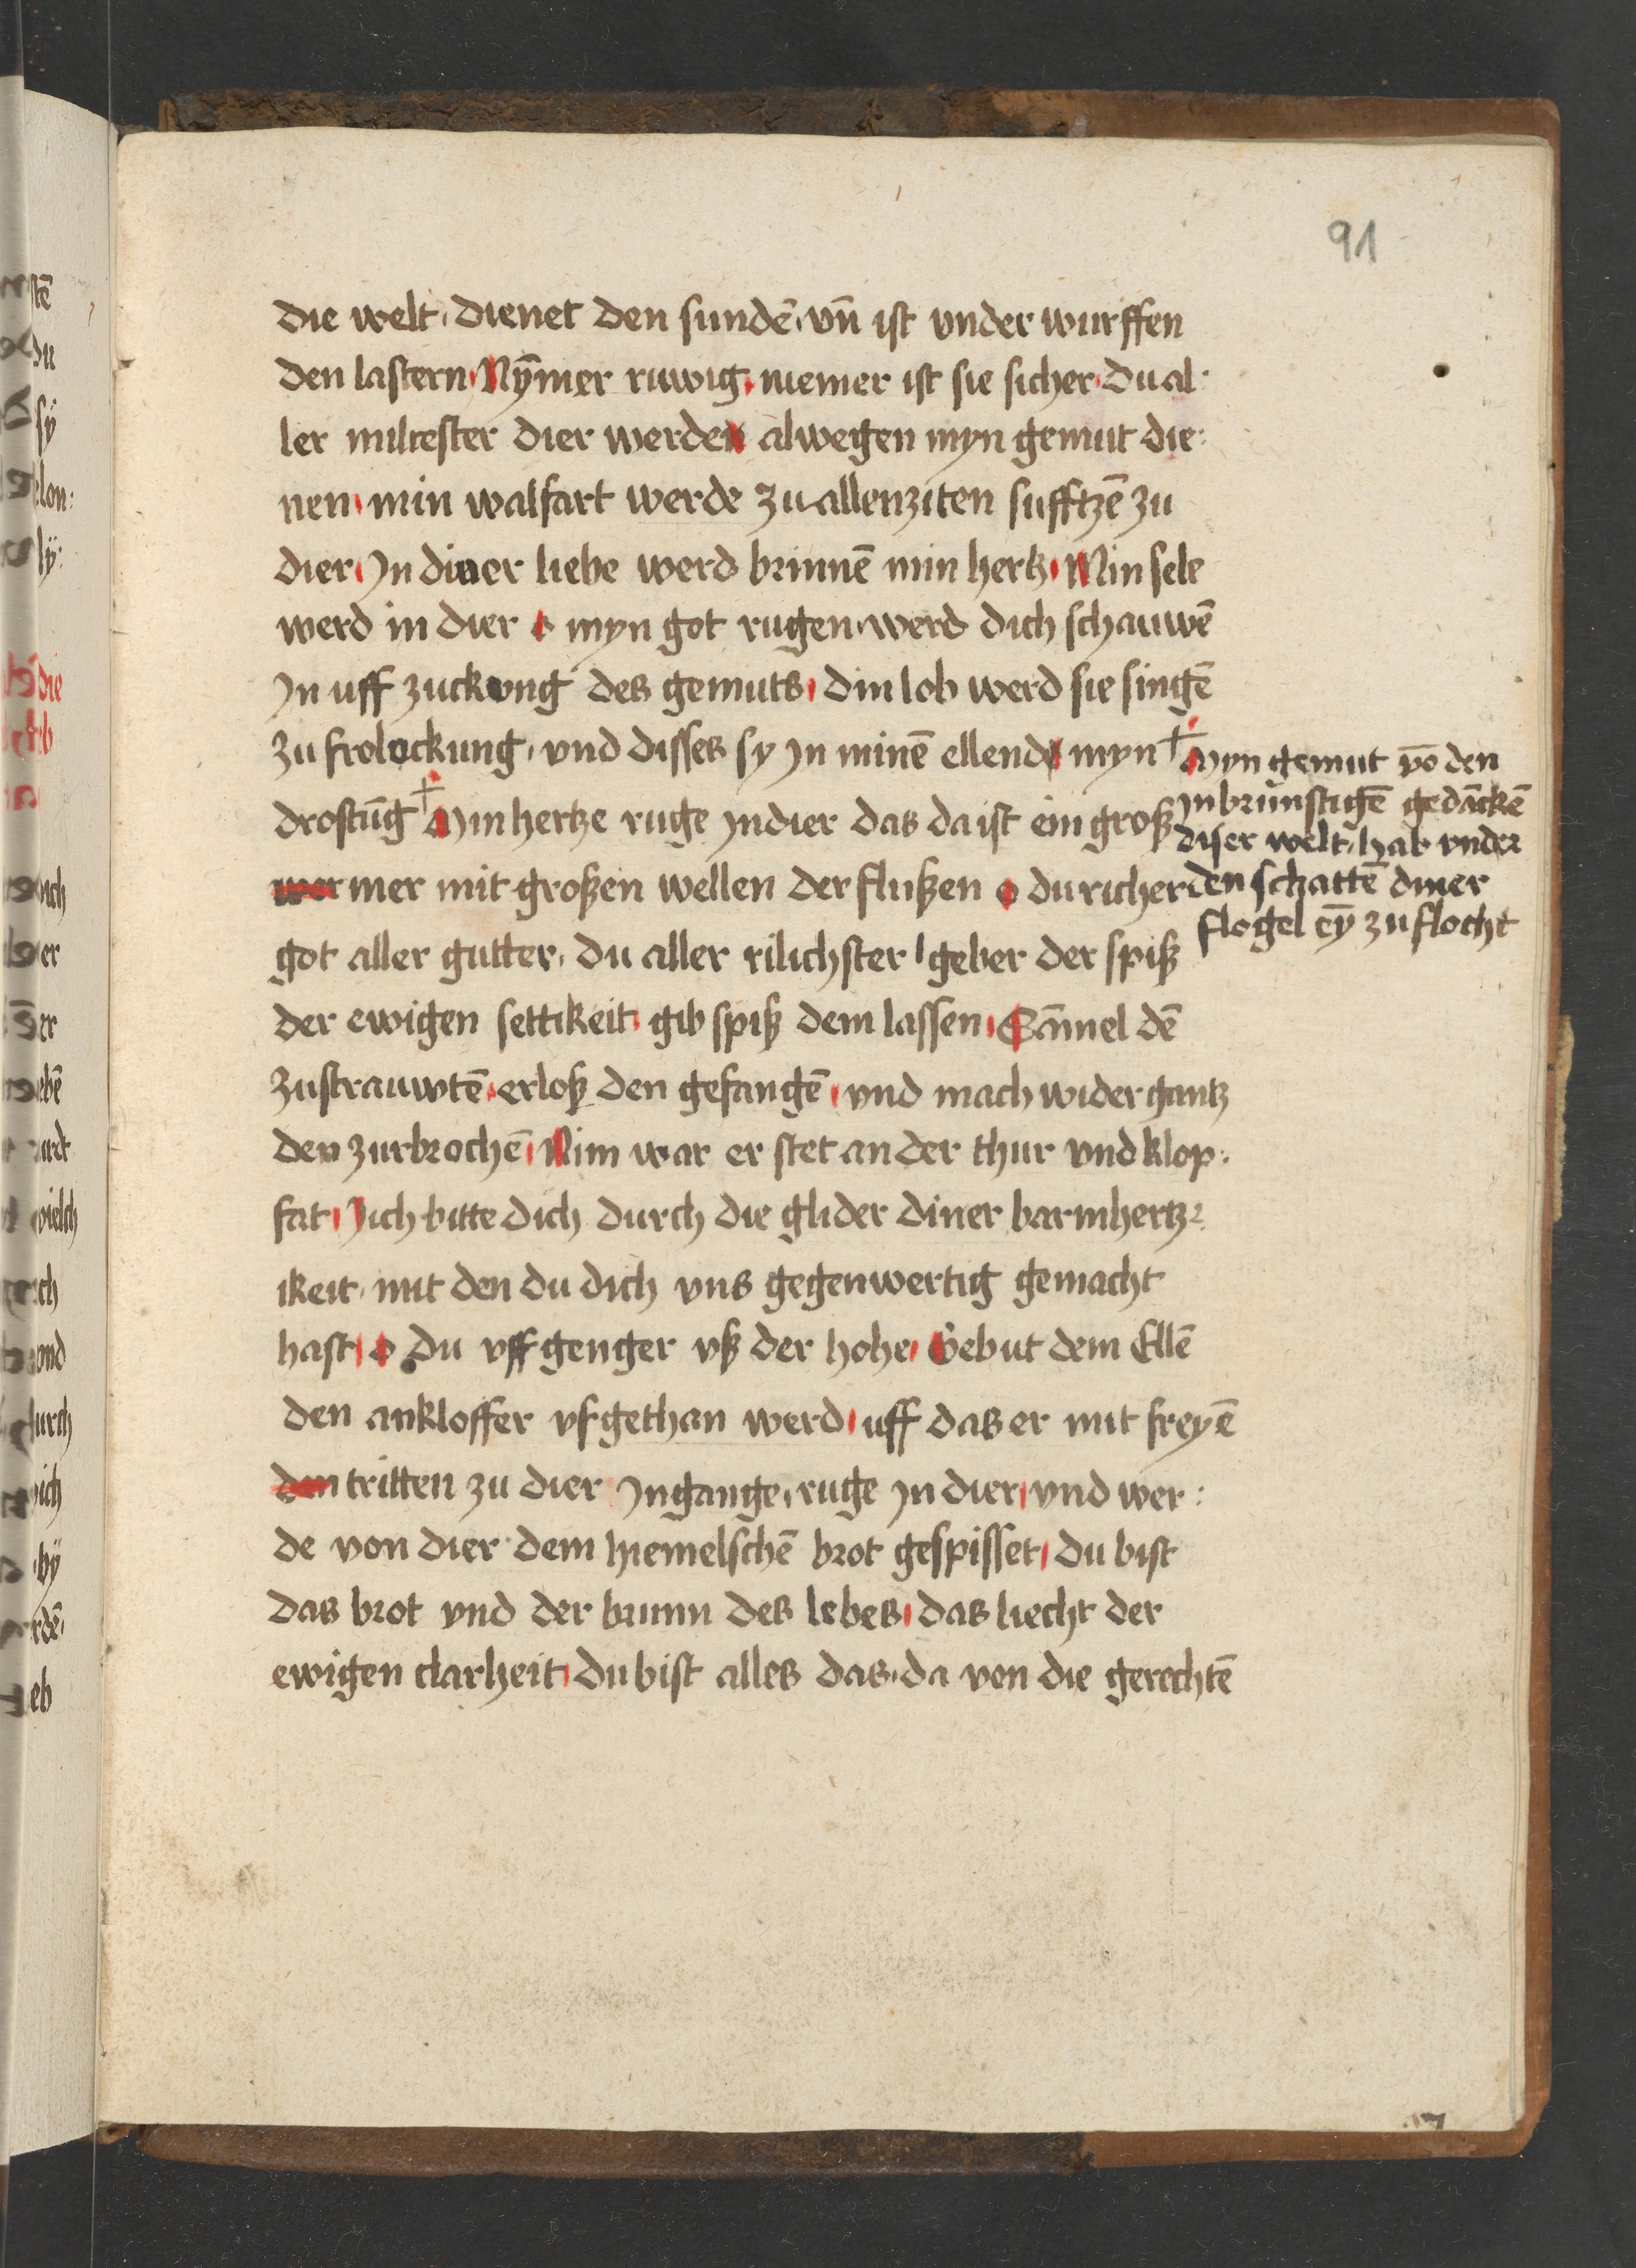 91
die welt, dienet den sundē, vn̄ ist vnder wurffen
den lastern, Nȳmer ruwig, niemer ist sie sicher, du al-
ler miltester dier werden alwegen myn gemut die-
nen, min walfart werde zu allenziten sufftzē zu
dier, In diner liebe werd brinnē min hertz, Min sele
werd in dier o myn got rugen, werd dich schauwē
In uff zuckong des gemuts, din lob werd sie singē
zu frolockung, vnd disses sy In minē ellende myn +
drostūg + Min hertze ruge Indier das da ist ein groß
mer mer mit großen wellen der flußen o du richer
got aller gutter, du aller rilichster geber der spiß
der ewigen settikeit, gib spiß dem lassen, Sāmel dē
zustrauwtē, erloß den gefangē, vnd mach wider gantz
den zurbrochē, Nim war er stet an der thur vnd klop-
fat, Jich bitte dich durch die glider diner barmhertz-
ikeit, mit den du dich vns gegenwertig gemacht
hast, o du vffgenger vß der hohe, Gebut dem Ellē
den ankloffer vfgethan werd, uff das er mit freyē
den tritten zu dier Ingange, ruge In dier, vnd wer-
de von dier dem hiemelschē brot gespisset, du bist
das brot vnd der brunn des lebes, das liecht der
ewigen clarheit, du bist alles das, da von die gerechtē
Myn gemut vō den
Inbrunstigē gedāckē
diser welt, hab vnder
den schattē diner
flogel eȳ zuflocht